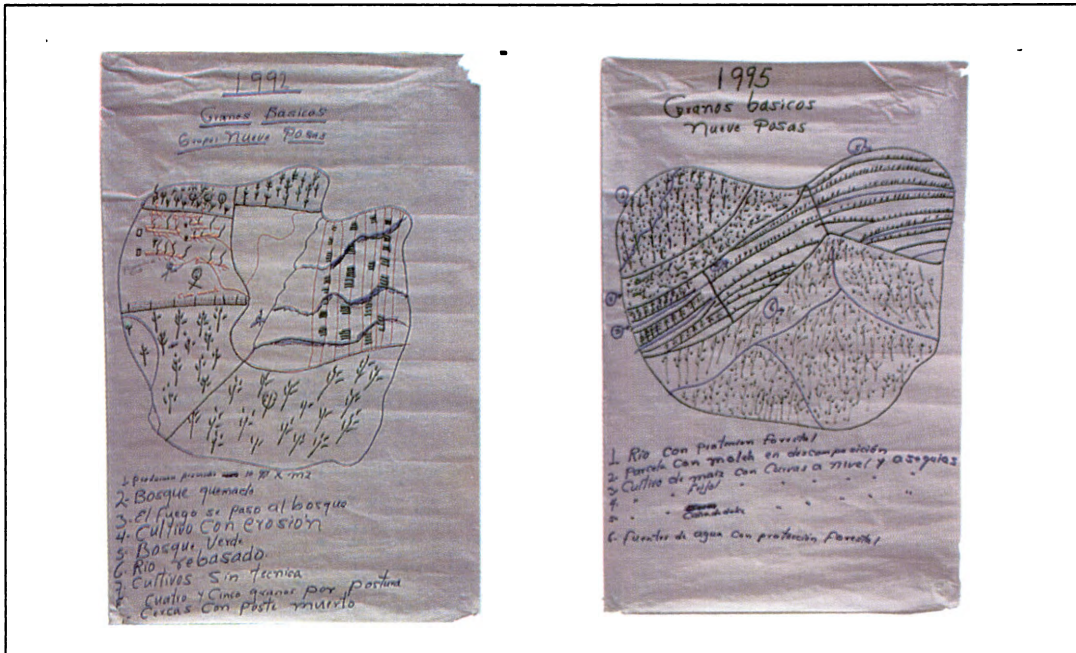 1992
Granos Basicos
Grupo: Nueve Posas
1. produccion promedio 10 qq x mz
2- Bosque quemado
3. El fuego se paso al bosque
4- Cultivo con erosión
5. Bosque Verde
6. Rio rebasado
7. Cultivos Sin tecnica
8. Cuatro y Cinco granos por postura
Cercas Con poste muerto
1995
Granos basicos
Nueve Posas
1. Rio con protección forestal
2. Parcela Con molch en descomposición
3. Cultivo de maíz con Curvas a nivel y asequias
4. " " frijol " " " "
5. " "
6. fuentes de agua con protección forestal